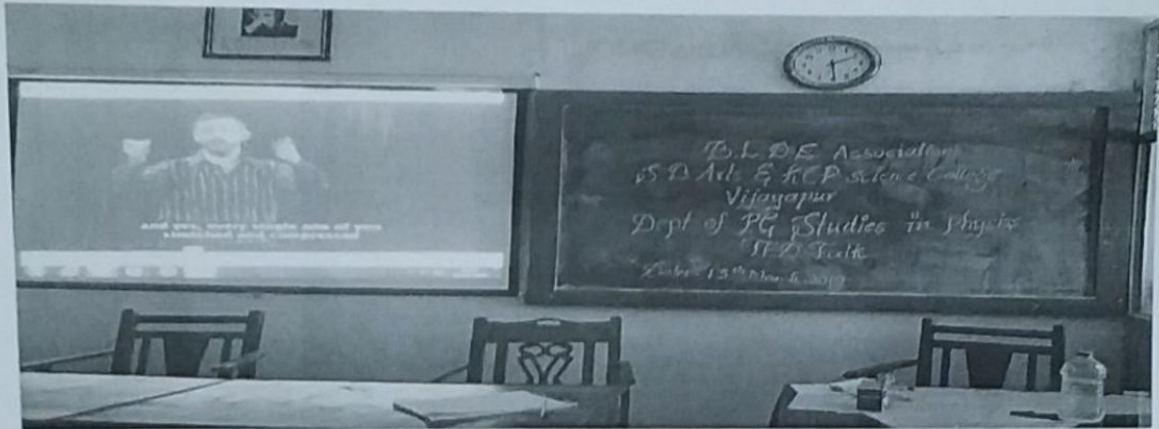 and yes, every single one of you
stretched and compressed
B.L D E Association
S B Arts & KCP Science College
Vijayapur
Dept of PG Studies in Physics
TED Talk
13th March